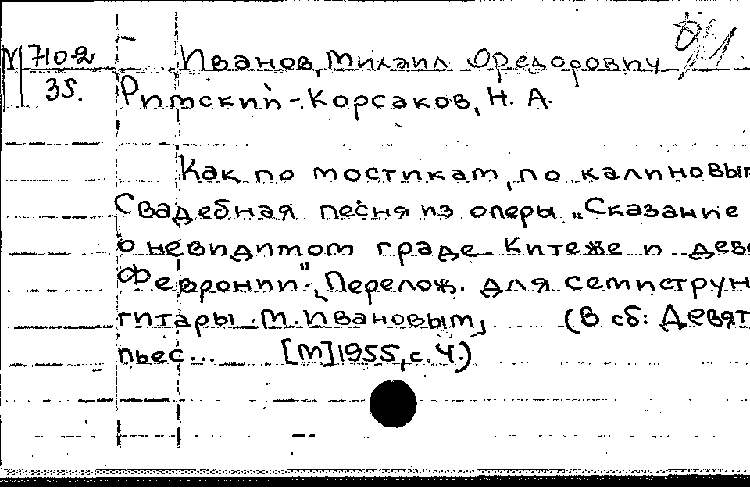 М 710-2
35.
Иванов, Михаил Федорович
Римский-Корсаков, Н. А.
Как по мостикам, по калиновым
Свадебная песня из оперы „Сказание
о невидимом граде Китеже и дев
Февронии". Перелож. для семиструн
гитары М. Ивановым, (В сб: Девят
пьес... [М] 1955, с. 4.)